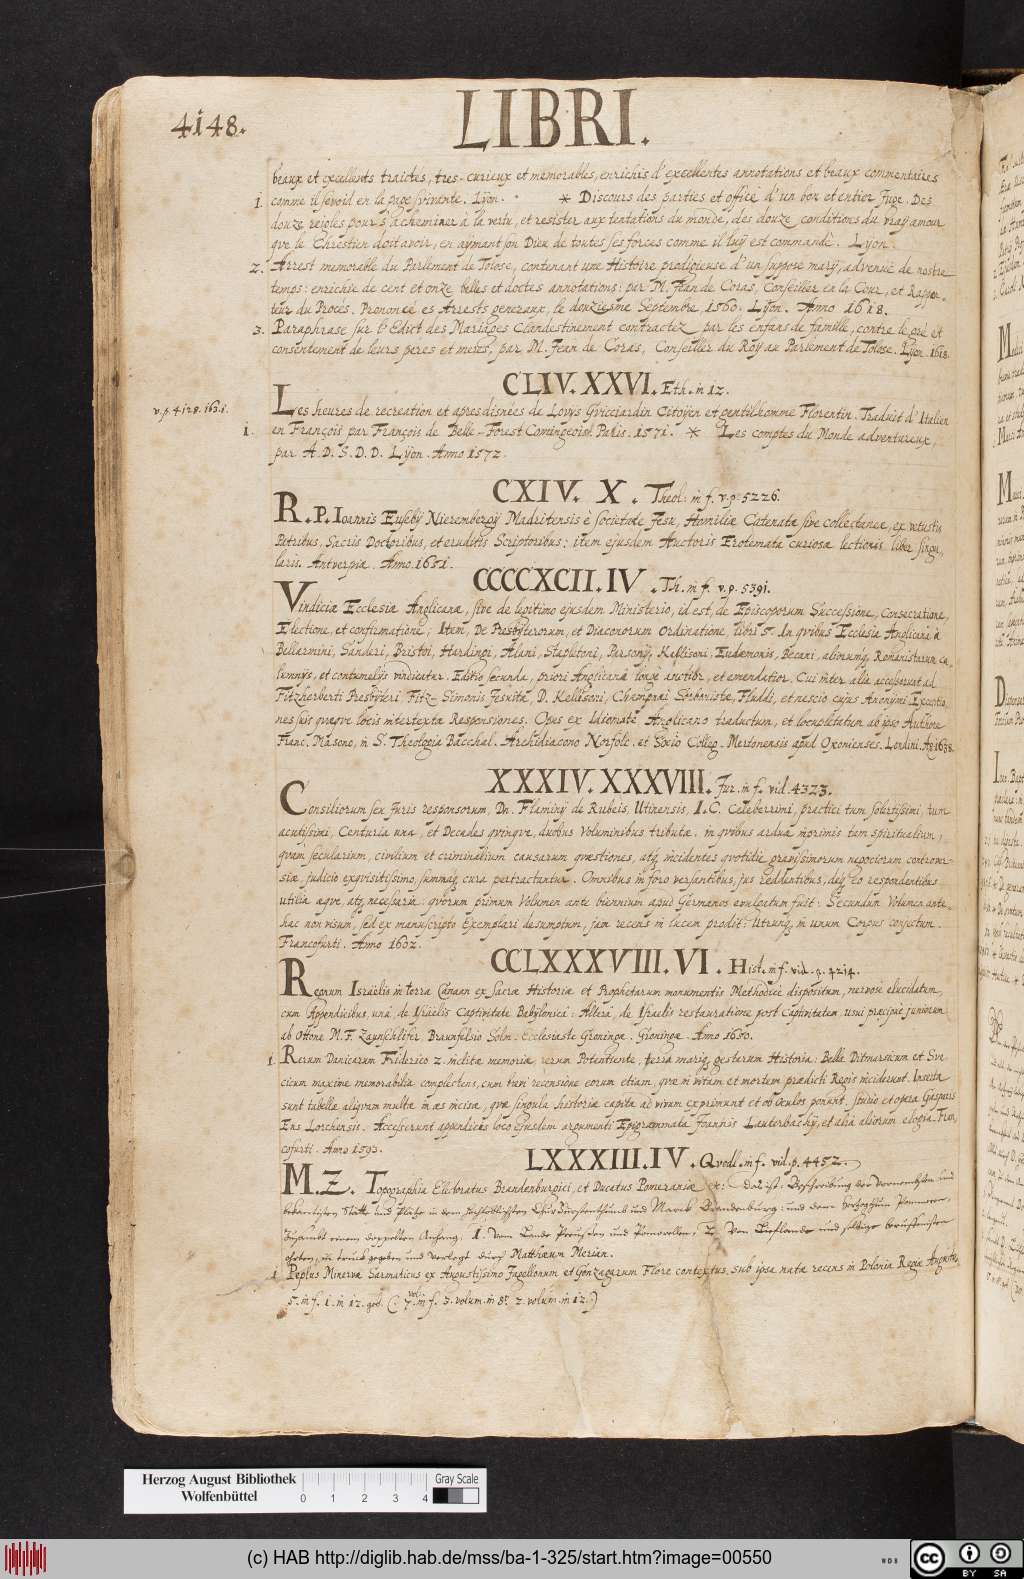 4148.
LIBRI.
beaux et excellents traictés, tres-curieux et memorables, enrichis d'excellentes annotations et beaux commentaires
1. comme il se void en la page suivante. Lÿon. * Discours des parties et office d'un bon et entier Juge. Des
douze reigles pour s'acheminer à la vertu, et resister aux tentations du monde, des douze conditions du vraÿ amour
que le Chrestien doit avoir, en aymant son Dieu de toutes ses forces comme il luÿ est commandé. Lyon.
2. Arrest memorable du Parlement de Tolose, contenant une Histoire prodigieuse d'un supposé marÿ, advenüe de nostre
temps: enrichie de cent et onze belles et doctes annotations: par M. Jean de Coras, Conseiller en la Cour, et Rappor-
teur du Procés. Prononcé es Arrests generaux, le douziesme Septembre 1560. Lÿon. Anno 1618.
3. Paraphrase sur l'Edict des Mariages Clandestinement contractez par les enfans de famille, contre le gré et
consentement de leurs peres et meres, par M. Jean de Coras, Conseiller du Roÿ au Parlement de Tolose. Lÿon. 1618.
CLIV. XXVI. Eth. in 12.
v. p. 4128. 163.1.
Les heures de recreation et apresdisnées de Lovys Gvicciardin Citoÿen et gentilhomme Florentin. Traduit d'Italien
1. en François par François de Belle-Forest Comingeois. Paris. 1571. * Les comptes du Monde adventureux,
par A. D. S. D. D. Lÿon. Anno 1572.
CXIV. X. Theol: in f. v. p. 5226.
R. P. Ioannis Eusebÿ Nierembergÿ Madritensis è Societate Jesu, Homiliæ Catenatæ sive collectanea, ex vetustis
Patribus, Sacris Doctoribus, et eruditis Scriptoribus: item ejusdem Auctoris Erotemata curiosa lectionis liber singu-
laris. Antverpiæ. Anno. 1651.
CCCCXCII. IV. Th. in f. v. p. 5391.
Vindiciæ Ecclesiæ Anglicanæ, sive de legitimo ejusdem Ministerio, id est, de Episcoporum Successione, Consecratione,
Electione, et confirmatione; Item, De Presbÿterorum, et Diaconorum ordinatione, libri 5. In qvibus Ecclesia Anglicana à
Bellarmini, Sanderi, Bristoi, Hardingi, Alani, Stapletoni, Parsonÿ, Kellisoni, Eudæmonis, Becani, aliorumq, Romanistarum ca-
lumnÿs, et contumelÿs vindicatur. Editio secunda, priori Anglicana longe auctior, et emendatior. Cui inter alia accesserunt ad
Fitzherberti Presbÿteri Fitz-Simonis Jesuitæ, D. Kellisoni, Champnæi Sorbonistæ, Fluddi, et nescio cujus Anonÿmi Exceptio-
nes suis quæqve locis intertextæ Responsiones. Opus ex Idiomate Anglicano traductum, et locupletatum ab ipso Authore
Franc. Masono, in S. Theologia Bacchal. Archidiacono Norfolc. et Socio Colleg. Mertonensis apud Oxonienses. Londini. Ao 1638.
XXXIV. XXXVIII. Jur. in f. vid. 4323.
Consiliorum seu Juris responsorum, Dn. Flaminÿ de Rubeis, Utinensis, I. C. Celeberrimi, practici tum solertissimi, tum
acutissimi, Centuria una, et Decades qvinqve, duobus Voluminibus tributæ. in qvibus ardua inprimis tam spiritualium,
qvàm secularium, civilium et criminalium causarum qvæstiones, atq, incidentes quotidie gravissimorum negociorum controver-
siæ, judicio exqvisitissimo, summaq, cura pertractantur. Omnibus in foro versantibus, jus reddentibus, deq, eo respondentibus
utilia æqve, atq, necessaria: qvorum primum Volumen ante biennium apud Germanos evulgatum fuit: Secundum Volumen ante-
hac non visum, sed ex manuscripto Exemplari desumptum, jam recens in lucem prodit: Utrumq, in unum Corpus conjectum.
Francofurti. Anno 1602.
CCLXXXVIII. VI. Hist. in f. vid. p. 4214.
Regnum Israelis in terra Canaan ex Sacræ Historiæ et Prophetarum monumentis Methodice dispositum, nervose elucidatum,
cum Appendicibus, una, de Israelis Captivitate Babylonica: Altera, de Israelis restauratione post Captivitatem, usui præcipue juniorum
ab Ottone M. F. Zaunschlifer Braunfelsio Solm. Ecclesiaste Groningæ. Groningæ. Anno 1650.
1. Rerum Danicarum Friderico 2. inclitæ memoriæ, rerum Potentiente, terra mariq, gestarum Historia: Bella Ditmarsicum et Sve-
cicum maxime memorabilia complectens, cum tum recensione eorum etiam, quæ in vitam et mortem prædicti Regis inciderunt. Insertæ
sunt tabellæ aliqvam multæ in æs incisæ, qvæ singula historiæ capita ad vivum exprimunt et ob oculos ponunt. studio et opera Gasparis
Ens Lorchensis. Accesserunt appendicis loco ejusdem argumenti Epigrammata Joannis Lauterbachÿ, et alia aliorum elogia. Fran-
cofurti. Anno 1593.
LXXXIII. IV. Qvodl. in f. vid. p. 4452.
M. Z. Topographia Electoratus Brandenburgici, et Ducatus Pomeraniæ etc: Das ist: Beschreibung der Vornembsten und
bekantisten Stätte und Plätz in dem hochlöblichsten Churfürstenthumb und Marck Brandenburg: und dem Hertzogthum Pommeren,
zusambt einem doppelten Anhang, 1. Vom Lande Preussen und Pomerellen, 2. Von Lieflande und selbige beruffenisten
ohrten, in truck gegeben und verlegt durch Matthæum Merian.
1. Peplus Minervæ Sarmaticus ex Augustissimo Jagellonum et Gonzagarum Flore contextus, sub ipsa natæ recens in Polonia Reginæ Augustæ,
5. in f. 1. in 12. geb. (: 7. vol. in f. 3. volum. in 8°. 2. volum. in 12.)
Herzog August Bibliothek
Wolfenbüttel
0 1 2 3 4
Gray Scale
(c) HAB http://diglib.hab.de/mss/ba-1-325/start.htm?image=00550
WDB
cc
BY SA